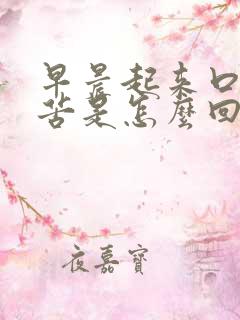 早晨起来口
苦是怎麼回
夜嘉寶